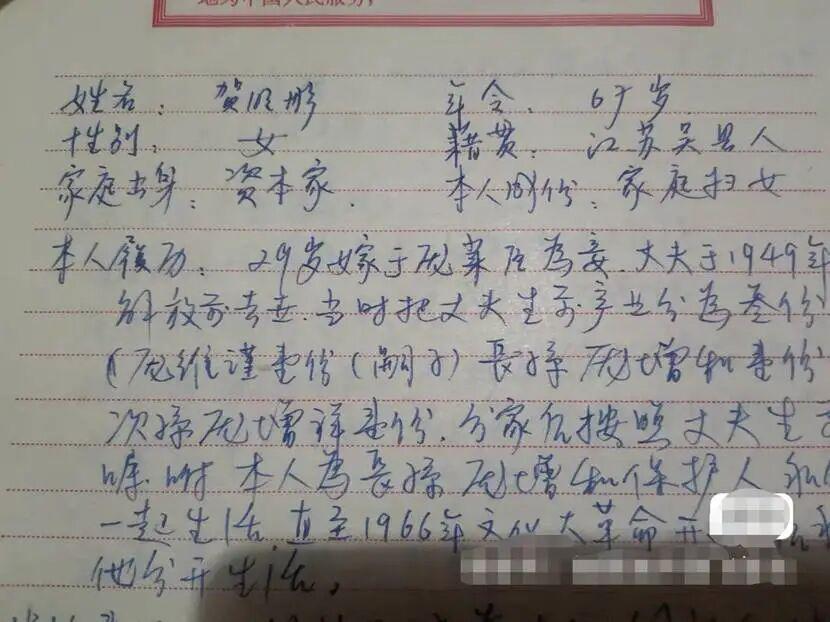 地为中国人民服务；
姓名：贺明彤 年令：67岁
性别：女 籍贯：江苏吴县人
家庭出身：资本家. 本人成份：家庭妇女
本人履历：29岁嫁于庞莱臣为妾.丈夫于1949年
解放前去世.当时把丈夫生前产业分为叁份
(庞维谨壹份(嗣子)長孫庞增和壹份
次孫庞增祥壹份.分家后按照丈夫生前
嘱咐本人為長孫庞增和保护人和
一起生活直至1966年文化大革命开
他分开生活。